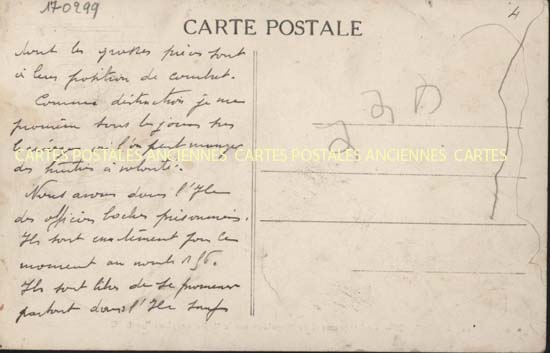 170299
4
CARTE POSTALE
dont les grosses pièces sont
à leur position de combat.
Comme distraction je me
promène tous les jours sur
où l'on peut manger
des huîtres à volonté.
CARTES POSTALES ANCIENNES CARTES POSTALES ANCIENNES CARTES
Nous avons dans l'Ile
des officiers boches prisonniers.
Ils sont exactement pour le
moment au nombre 156.
Ils sont libres de se promener
partout dans l'Ile sauf